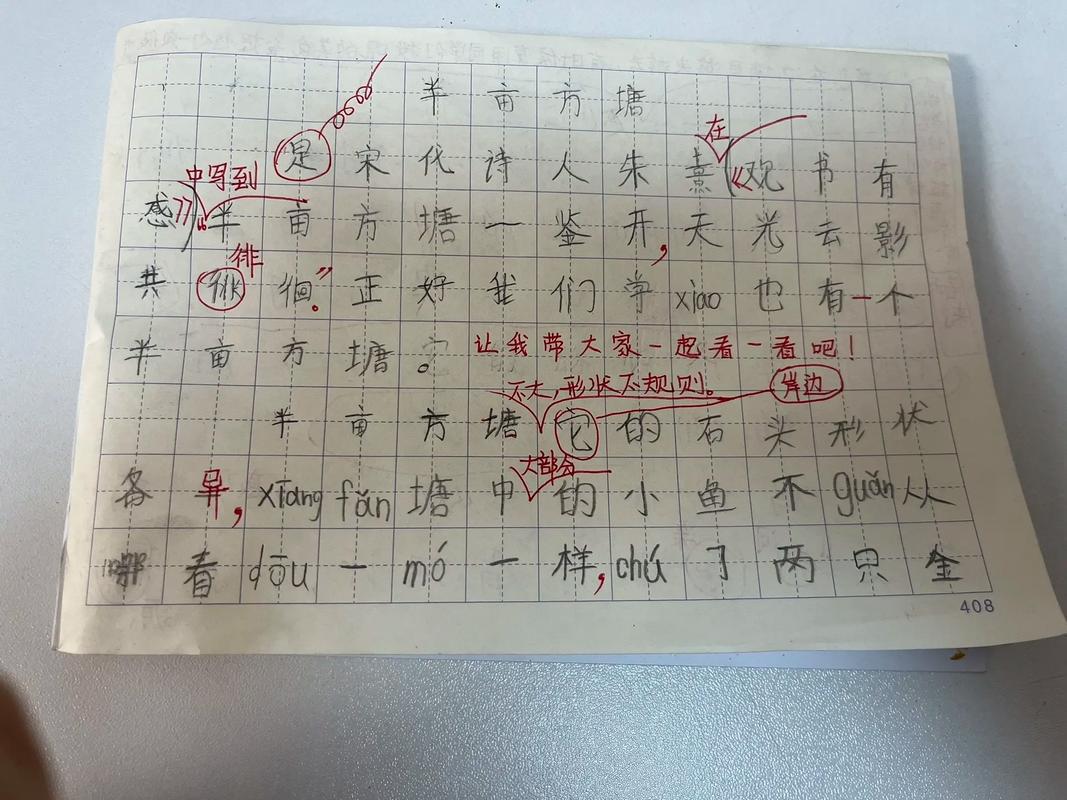 半亩方塘
在
是宋代诗人朱熹《观书有
中写到
感》半亩方塘一鉴开,天光云影
徘
共徘徊。”正好我们学xiào也有一个
半亩方塘。
让我带大家一起看一看吧!
不大,形状不规则。
岸边
半亩方塘它的石头形状
大部分
各异,xiāng fǎn塘中的小鱼不guǎn从
哪看dōu一mó一样,chú了两只金
408